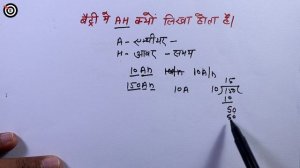 बैट्री में AH क्यों लिखा होता है।
A - एम्पीयर -
H - आवर - समय
10An 10A/n
150An 10A 10)150(15
10
50
50